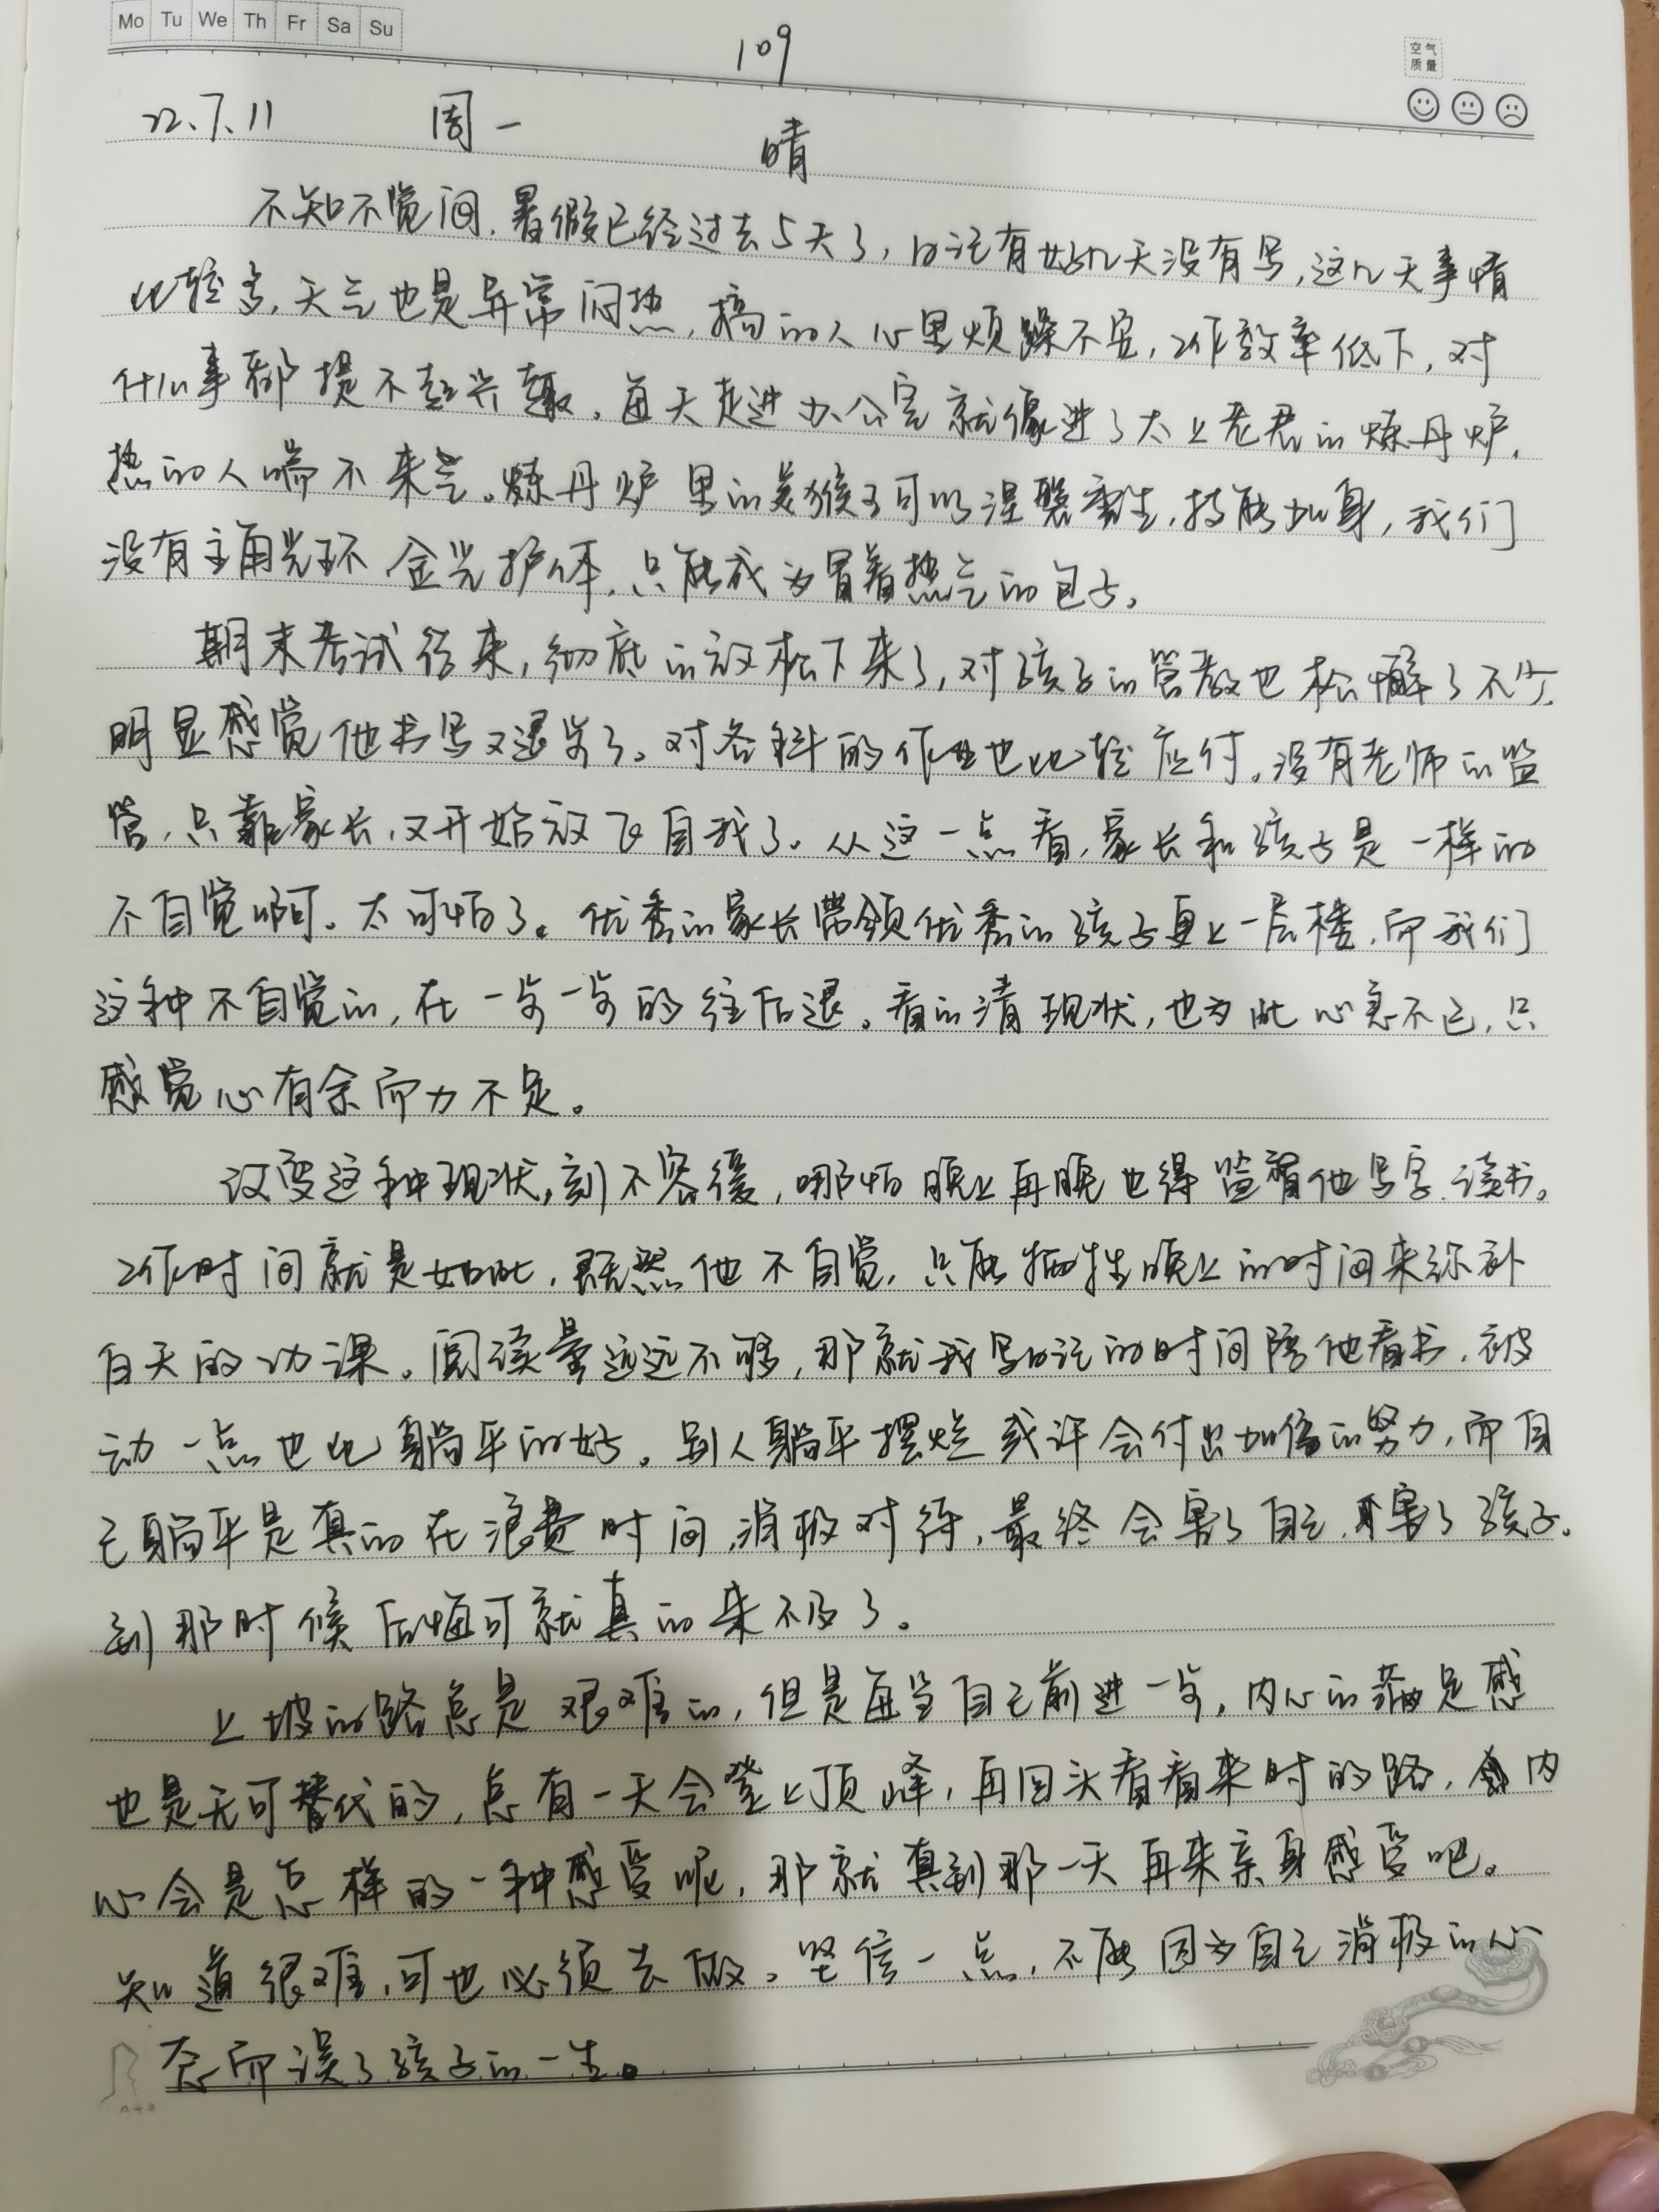 Mo Tu We Th Fr Sa Su
109
空气
质量
22.7.11 周一 晴
不知不觉间,暑假已经过去5天了,日记有好几天没有写,这几天事情
比较多,天气也是异常闷热,搞的人心里烦躁不安,工作效率低下,对
什么事都提不起兴趣。每天走进办公室就像进了太上老君的炼丹炉,
热的人喘不来气。炼丹炉里的美猴王可以涅槃重生,技能加身,我们
没有主角光环 金光护体,只能成为冒着热气的包子。
期末考试结束,彻底的放松下来了,对孩子的管教也松懈了不少,
明显感觉他书写又退步了。对各科的作业也比较应付。没有老师的监
管,只靠家长,又开始放飞自我了。从这一点看,家长和孩子是一样的
不自觉啊。太可怕了。优秀的家长带领优秀的孩子更上一层楼,而我们
这种不自觉的,在一步一步的往后退。看的清现状,也为此心急不已,只
感觉心有余而力不足。
改变这种现状,刻不容缓,哪怕晚上再晚也得监督他写字、读书。
工作时间就是如此,既然他不自觉,只能牺牲晚上的时间来弥补
白天的功课。阅读量远远不够,那就我写日记的时间陪他看书,被
动一点也比躺平的好。别人躺平摆烂或许会付出加倍的努力,而自
己躺平是真的在浪费时间,消极对待,最终会害了自己,害了孩子。
到那时候后悔可就真的来不及了。
上坡的路总是艰难的,但是每当自己前进一步,内心的满足感
也是无可替代的,总有一天会登上顶峰,再回头看看来时的路,内
心会是怎样的一种感受呢,那就真到那一天再来亲身感受吧。
知道很难,可也必须去做。坚信一点,不能因为自己消极的心
态而误了孩子的一生。